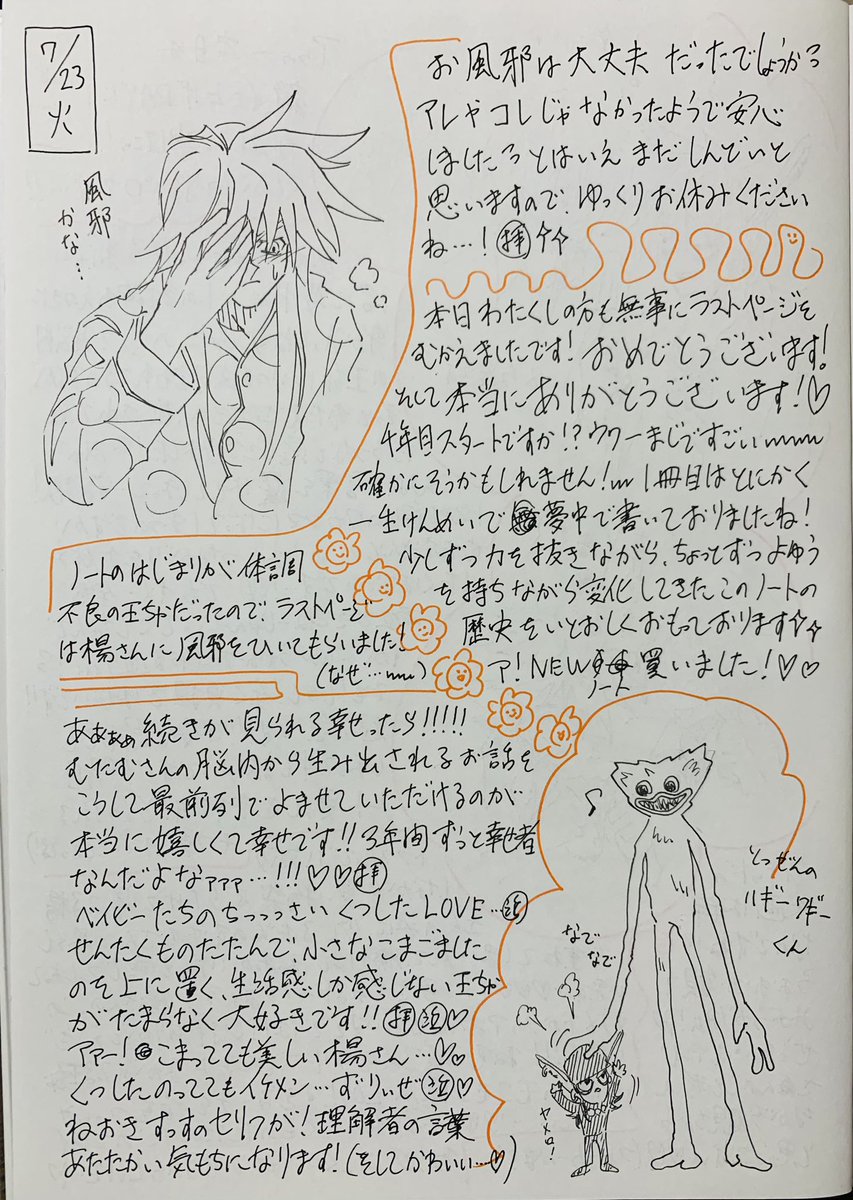 7/23
火
風邪
かな…
お風邪は大丈夫だったでしょうか?
アレやコレじゃなかったようで安心
しました?とはいえまだしんどいと
思いますので、ゆっくりお休みください
ね…!拝
本日わたくしの方も無事にラストページを
むかえましたです!おめでとうございます!
そして本当にありがとうございます!♡
4年目スタートですか!?ウワーまじですごいwww
確かにそうかもしれません!w 1冊目はとにかく
一生けんめいで夢中で書いておりましたね!
少しずつ力を抜きながら、ちょっとずつよゆう
を持ちながら変化してきたこのノートの
歴史をいとおしくおもっております
ア!NEWノート買いました!♡♡
ノートのはじまりが体調
不良の王ちゃだったので、ラストページ
は楊さんに風邪をひいてもらいました!
(なぜ…www)
あぁぁぁ続きが見られる幸せったら!!!!!
むたむさんの脳内から生み出されるお話を
こうして最前列でよませていただけるのが
本当に嬉しくて幸せです!!3年間ずっと幸せ者
なんだよなァァァ…!!!♡♡拝
ベイビーたちのちっっっさいくつしたLOVE…泣
せんたくものたたんで、小さなこまごました
のを上に置く、生活感しか感じない王ちゃ
がたまらなく大好きです!!拝泣♡
アァー!こまってても美しい楊さん…♡♡
くつしたのっててもイケメン…ずりぃぜ泣♡
ねおきすっすのセリフが!理解者の言葉
あたたかい気もちになります!(そしてかわいい…♡)
とつぜんの
ハギー ワギー
くん
なで
なで
ヤメロ!